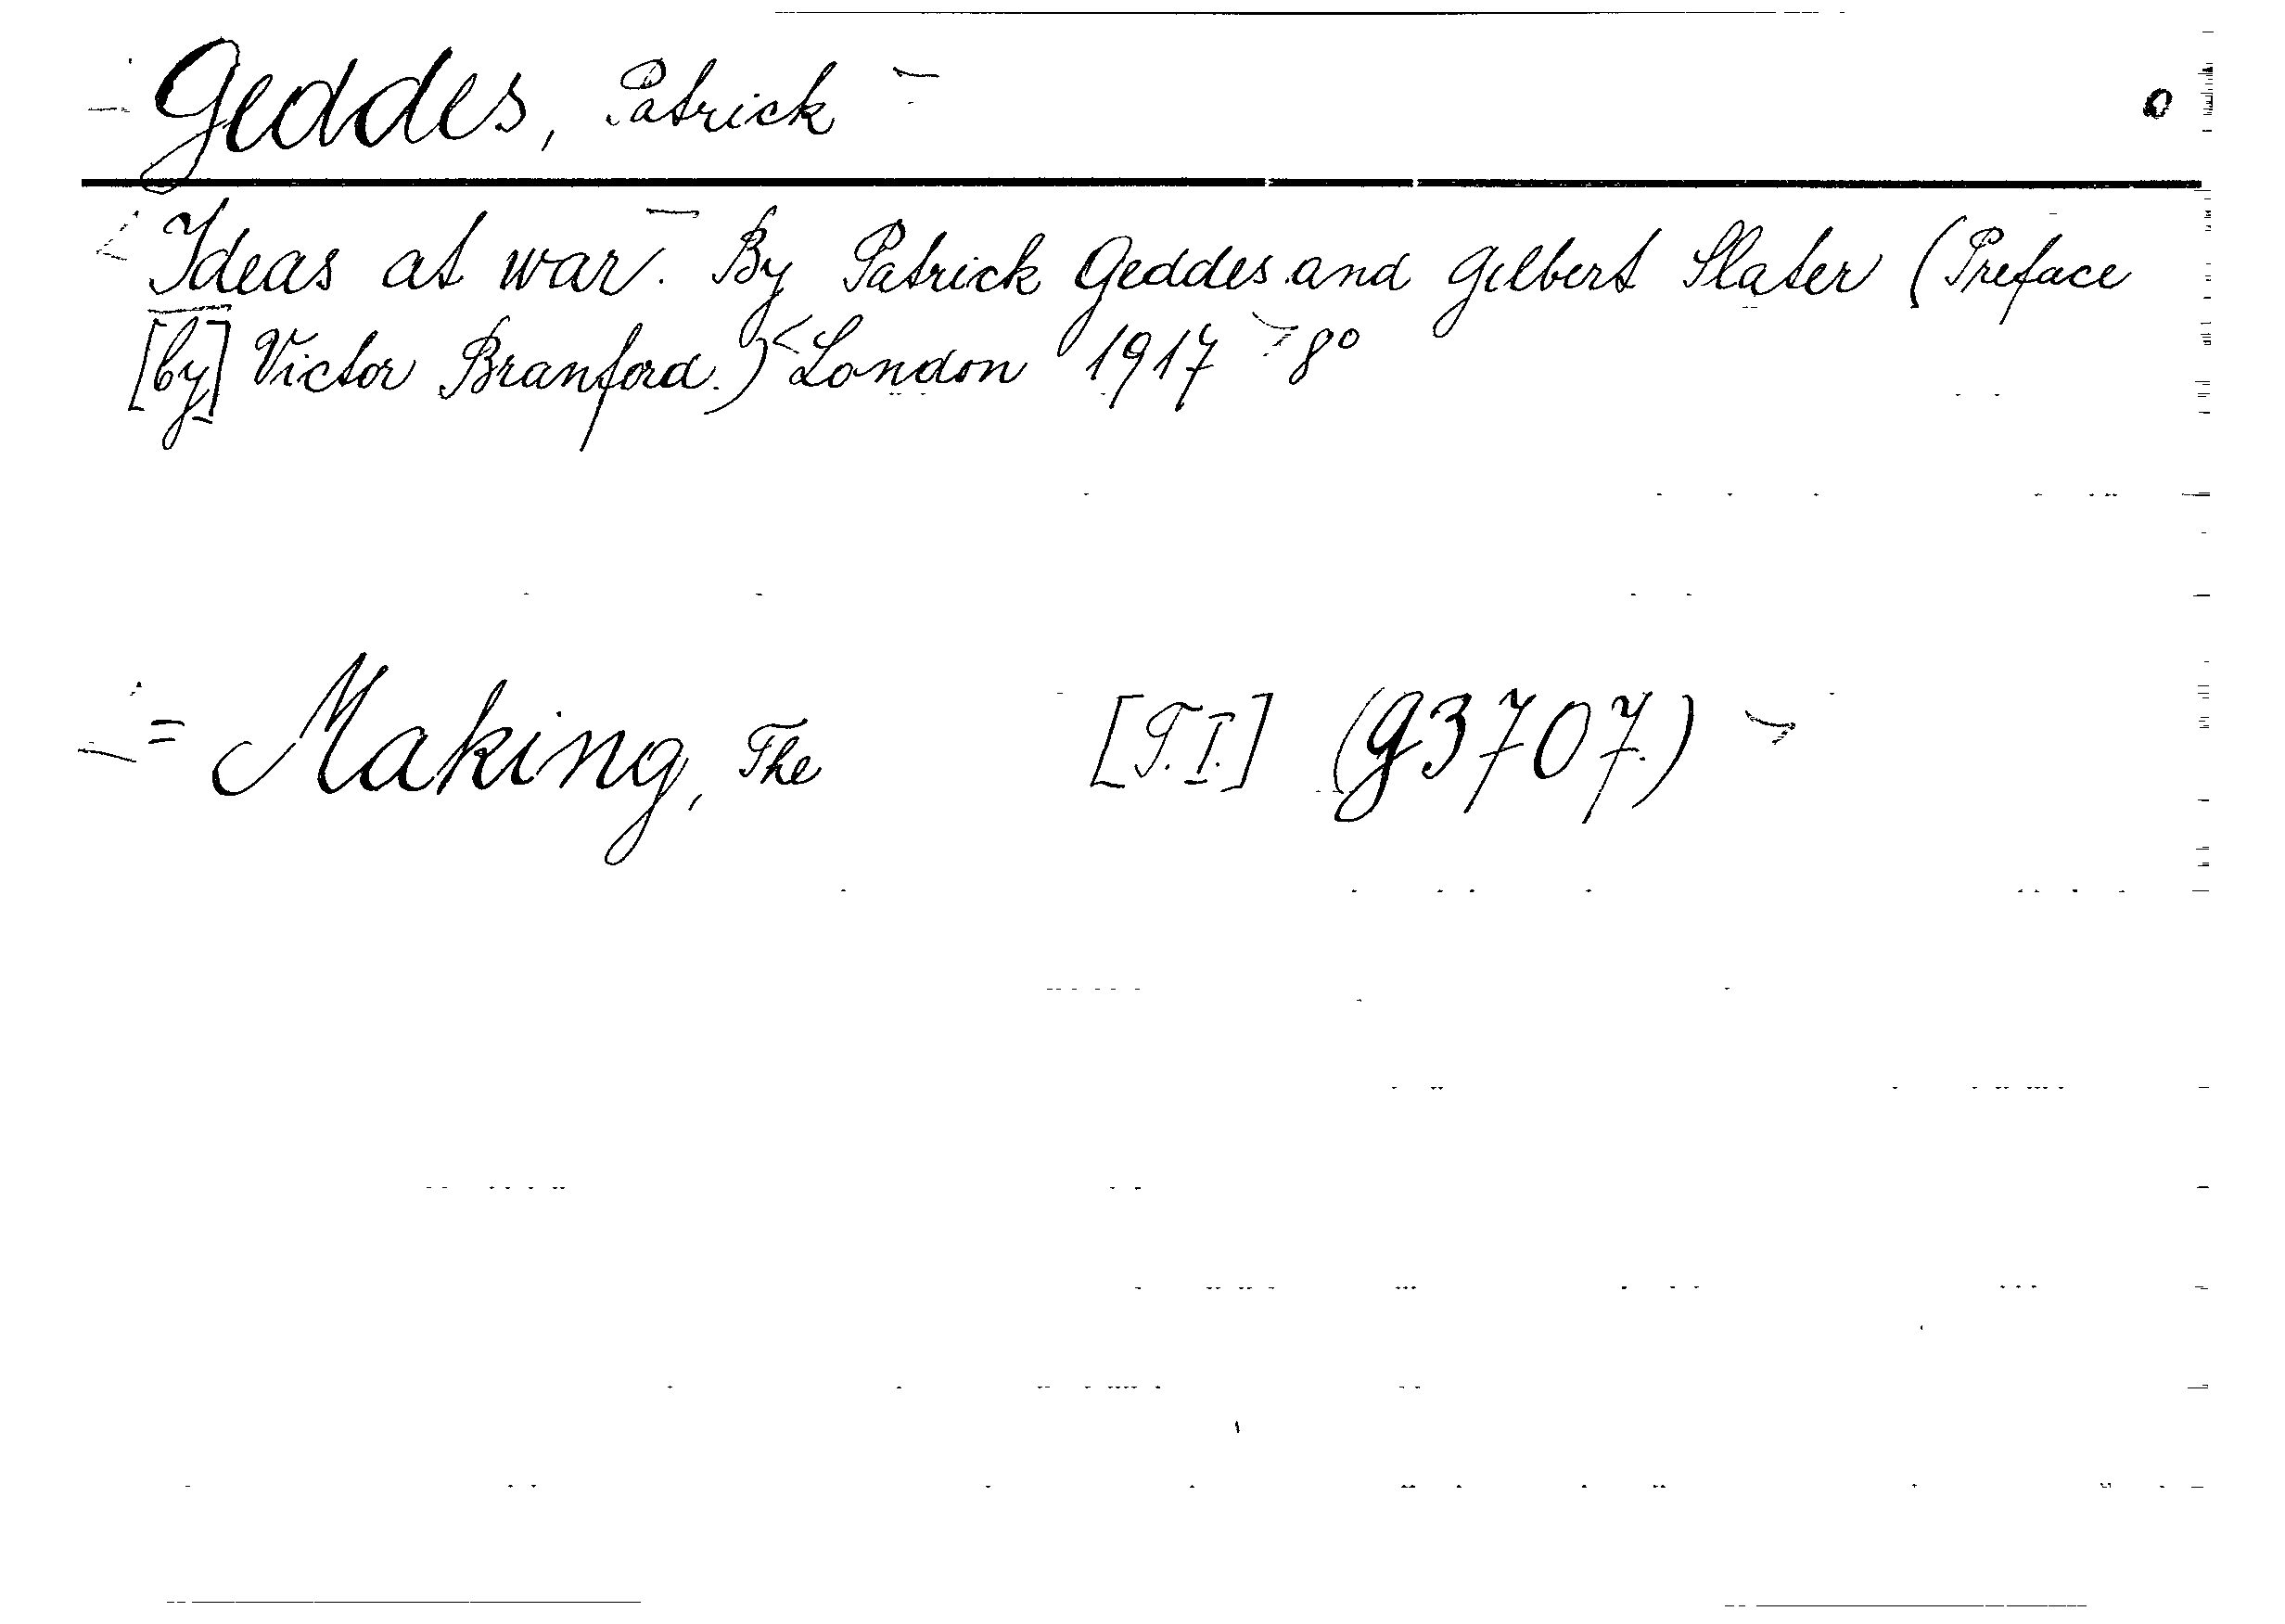 Geddes, Patrick
Ideas at war. By Patrick Geddes and Gilbert Slater (Preface
[by] Victor Branford.) London 1917 8°
= Making, The [T.I.] (G3707.)